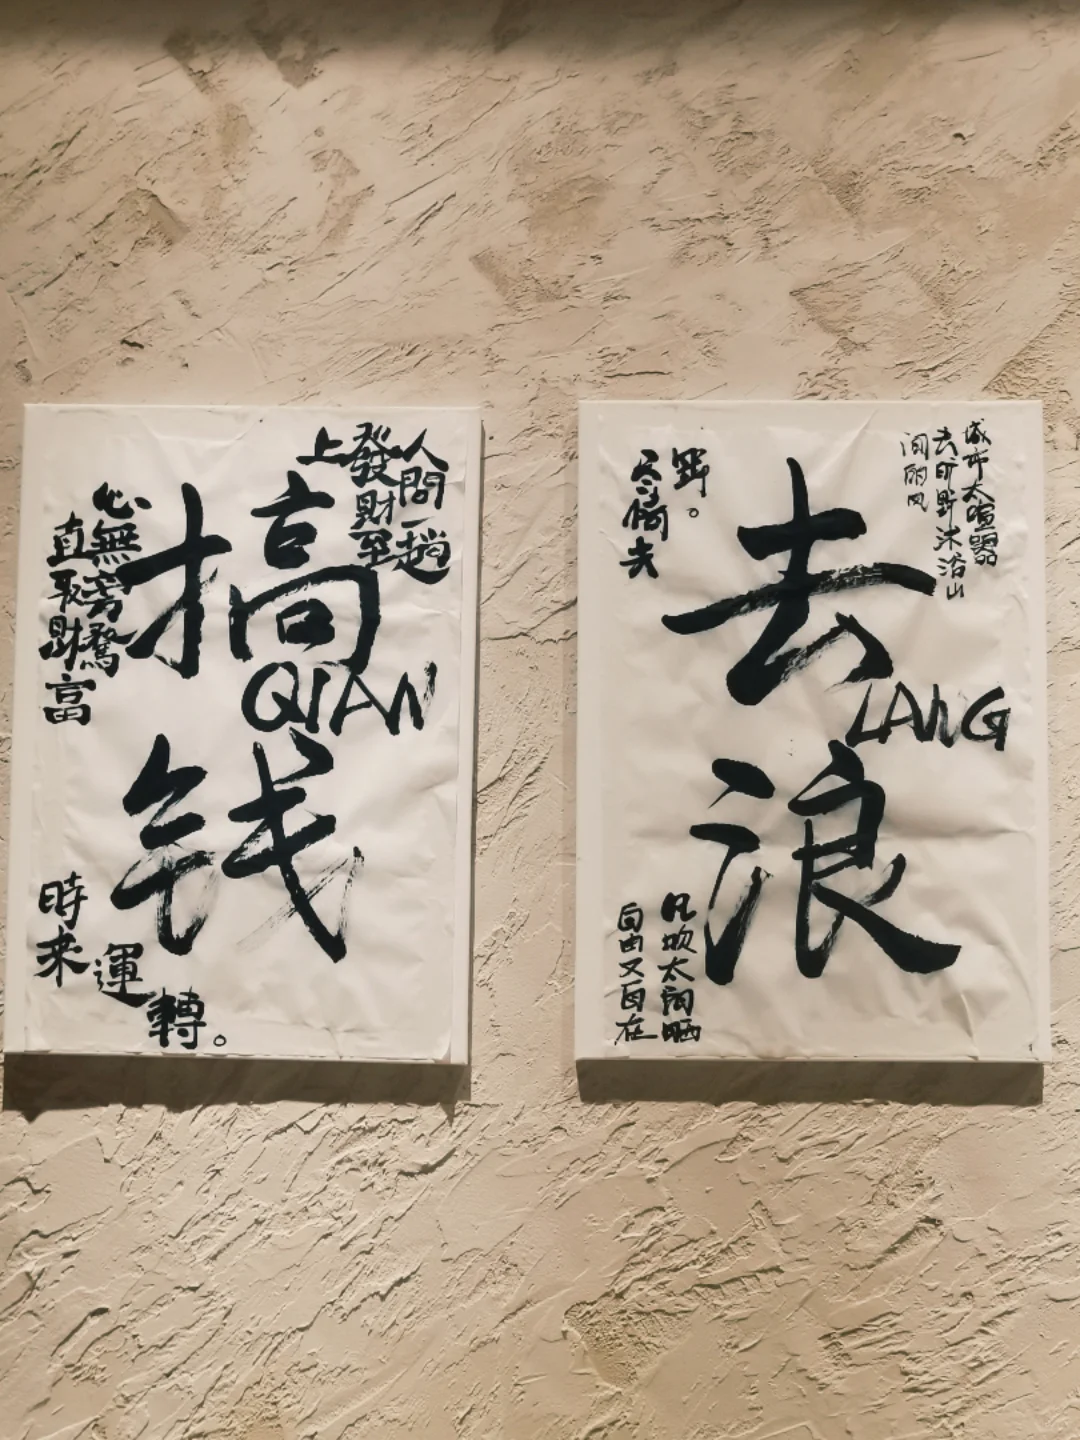 搞钱
QIAN
人間一趟
發財至
上
心無旁騖
直取財富
時来
運
轉。
去浪
LANG
城市太喧嚣
去旷野沐浴山
间的风
风吹太阳晒
自由又自在
尽情去
野。